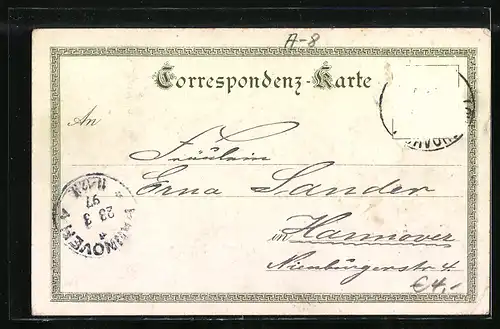 A-8
Correspondenz-Karte
An
Fräulein
Erna Sander
in Hannover
Nienburgerstr 4.
HANNOVER
23 3
97
11-12N
€4,-